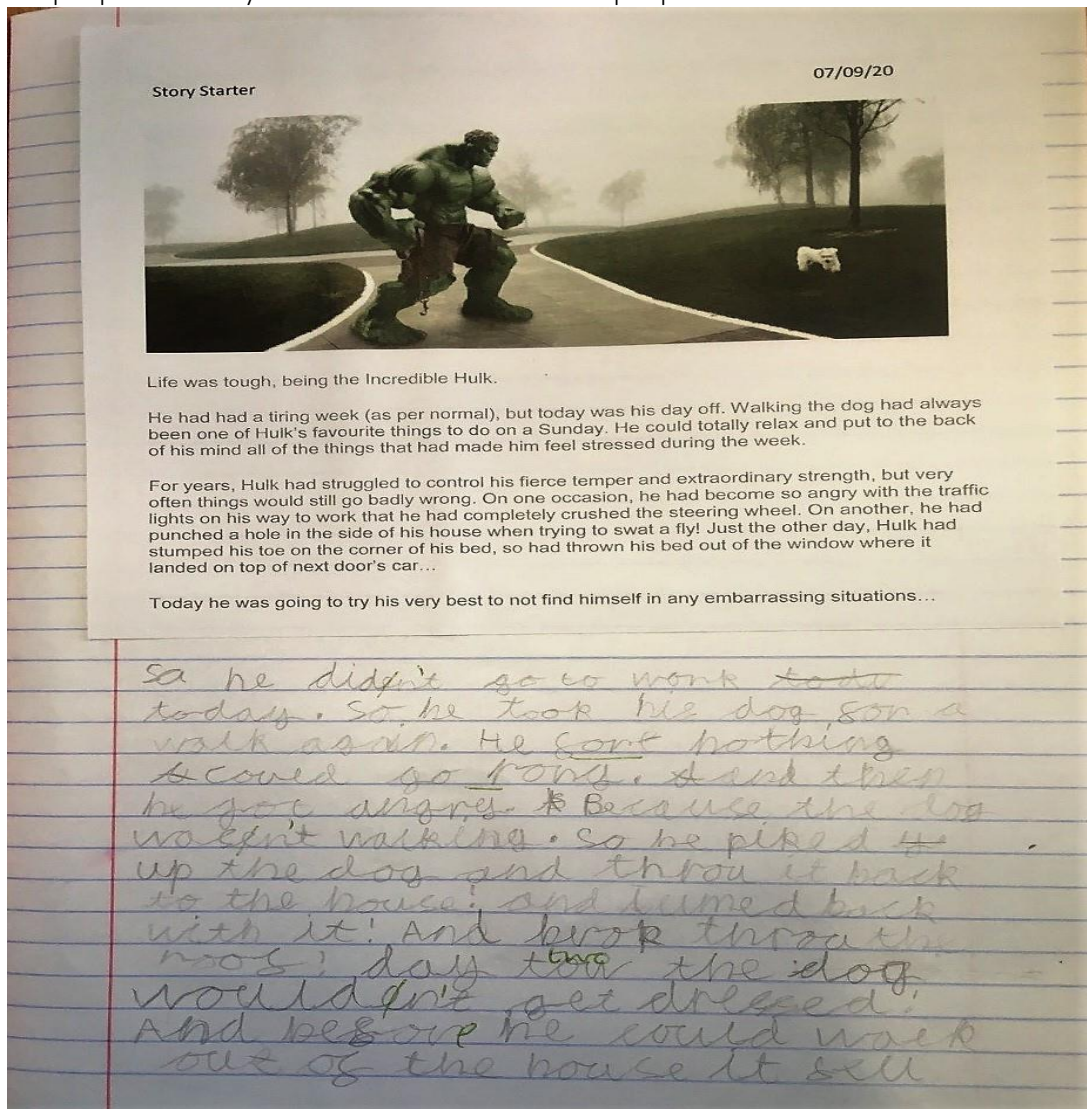 Story Starter
07/09/20
Life was tough, being the Incredible Hulk.
He had had a tiring week (as per normal), but today was his day off. Walking the dog had always
been one of Hulk's favourite things to do on a Sunday. He could totally relax and put to the back
of his mind all of the things that had made him feel stressed during the week.
For years, Hulk had struggled to control his fierce temper and extraordinary strength, but very
often things would still go badly wrong. On one occasion, he had become so angry with the traffic
lights on his way to work that he had completely crushed the steering wheel. On another, he had
punched a hole in the side of his house when trying to swat a fly! Just the other day, Hulk had
stumped his toe on the corner of his bed, so had thrown his bed out of the window where it
landed on top of next door's car...
Today he was going to try his very best to not find himself in any embarrassing situations...
So he didn't go to work
today. So he took his dog for a
walk again. He sort nothing
coued go rong. and then
he got angry. Because the dog
wasn't walking. So he piked
up the dog and throu it back
to the house! and back
with it! And brok throu the
roof! day two the dog
wouldn't get dressed!
And before he could walk
out of the house it fell